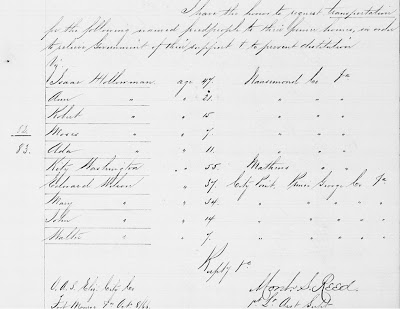 I have the honor to request transportation
for the following named freedpeople to their former homes, in order
to relieve Government of their support & to prevent destitution
viz
Isaac Holloman age 47. Nansemond Co Va
Ann " " 21. " " "
Robert " " 15 " " "
82. Moses " " 7. " " "
83. Ada " " 11. " " "
Kity Washington " 55. Mathews " "
Edward Wilson " 37. City Point, Prince George Co Va
Mary " " 34. " " " " "
John " " 14 " " " " "
Walter " " 7. " " " " "
Respy &c
O.A.S. Eliz. City Co Mark S. Reed
Fort Monroe Oct 1st Lt Asst Supt